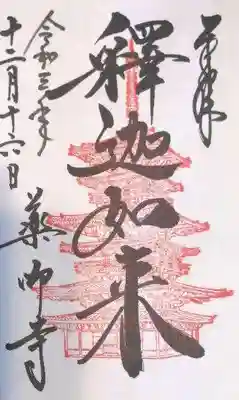 奉拝
釋迦如来
令和元年
十二月十六日
薬師寺